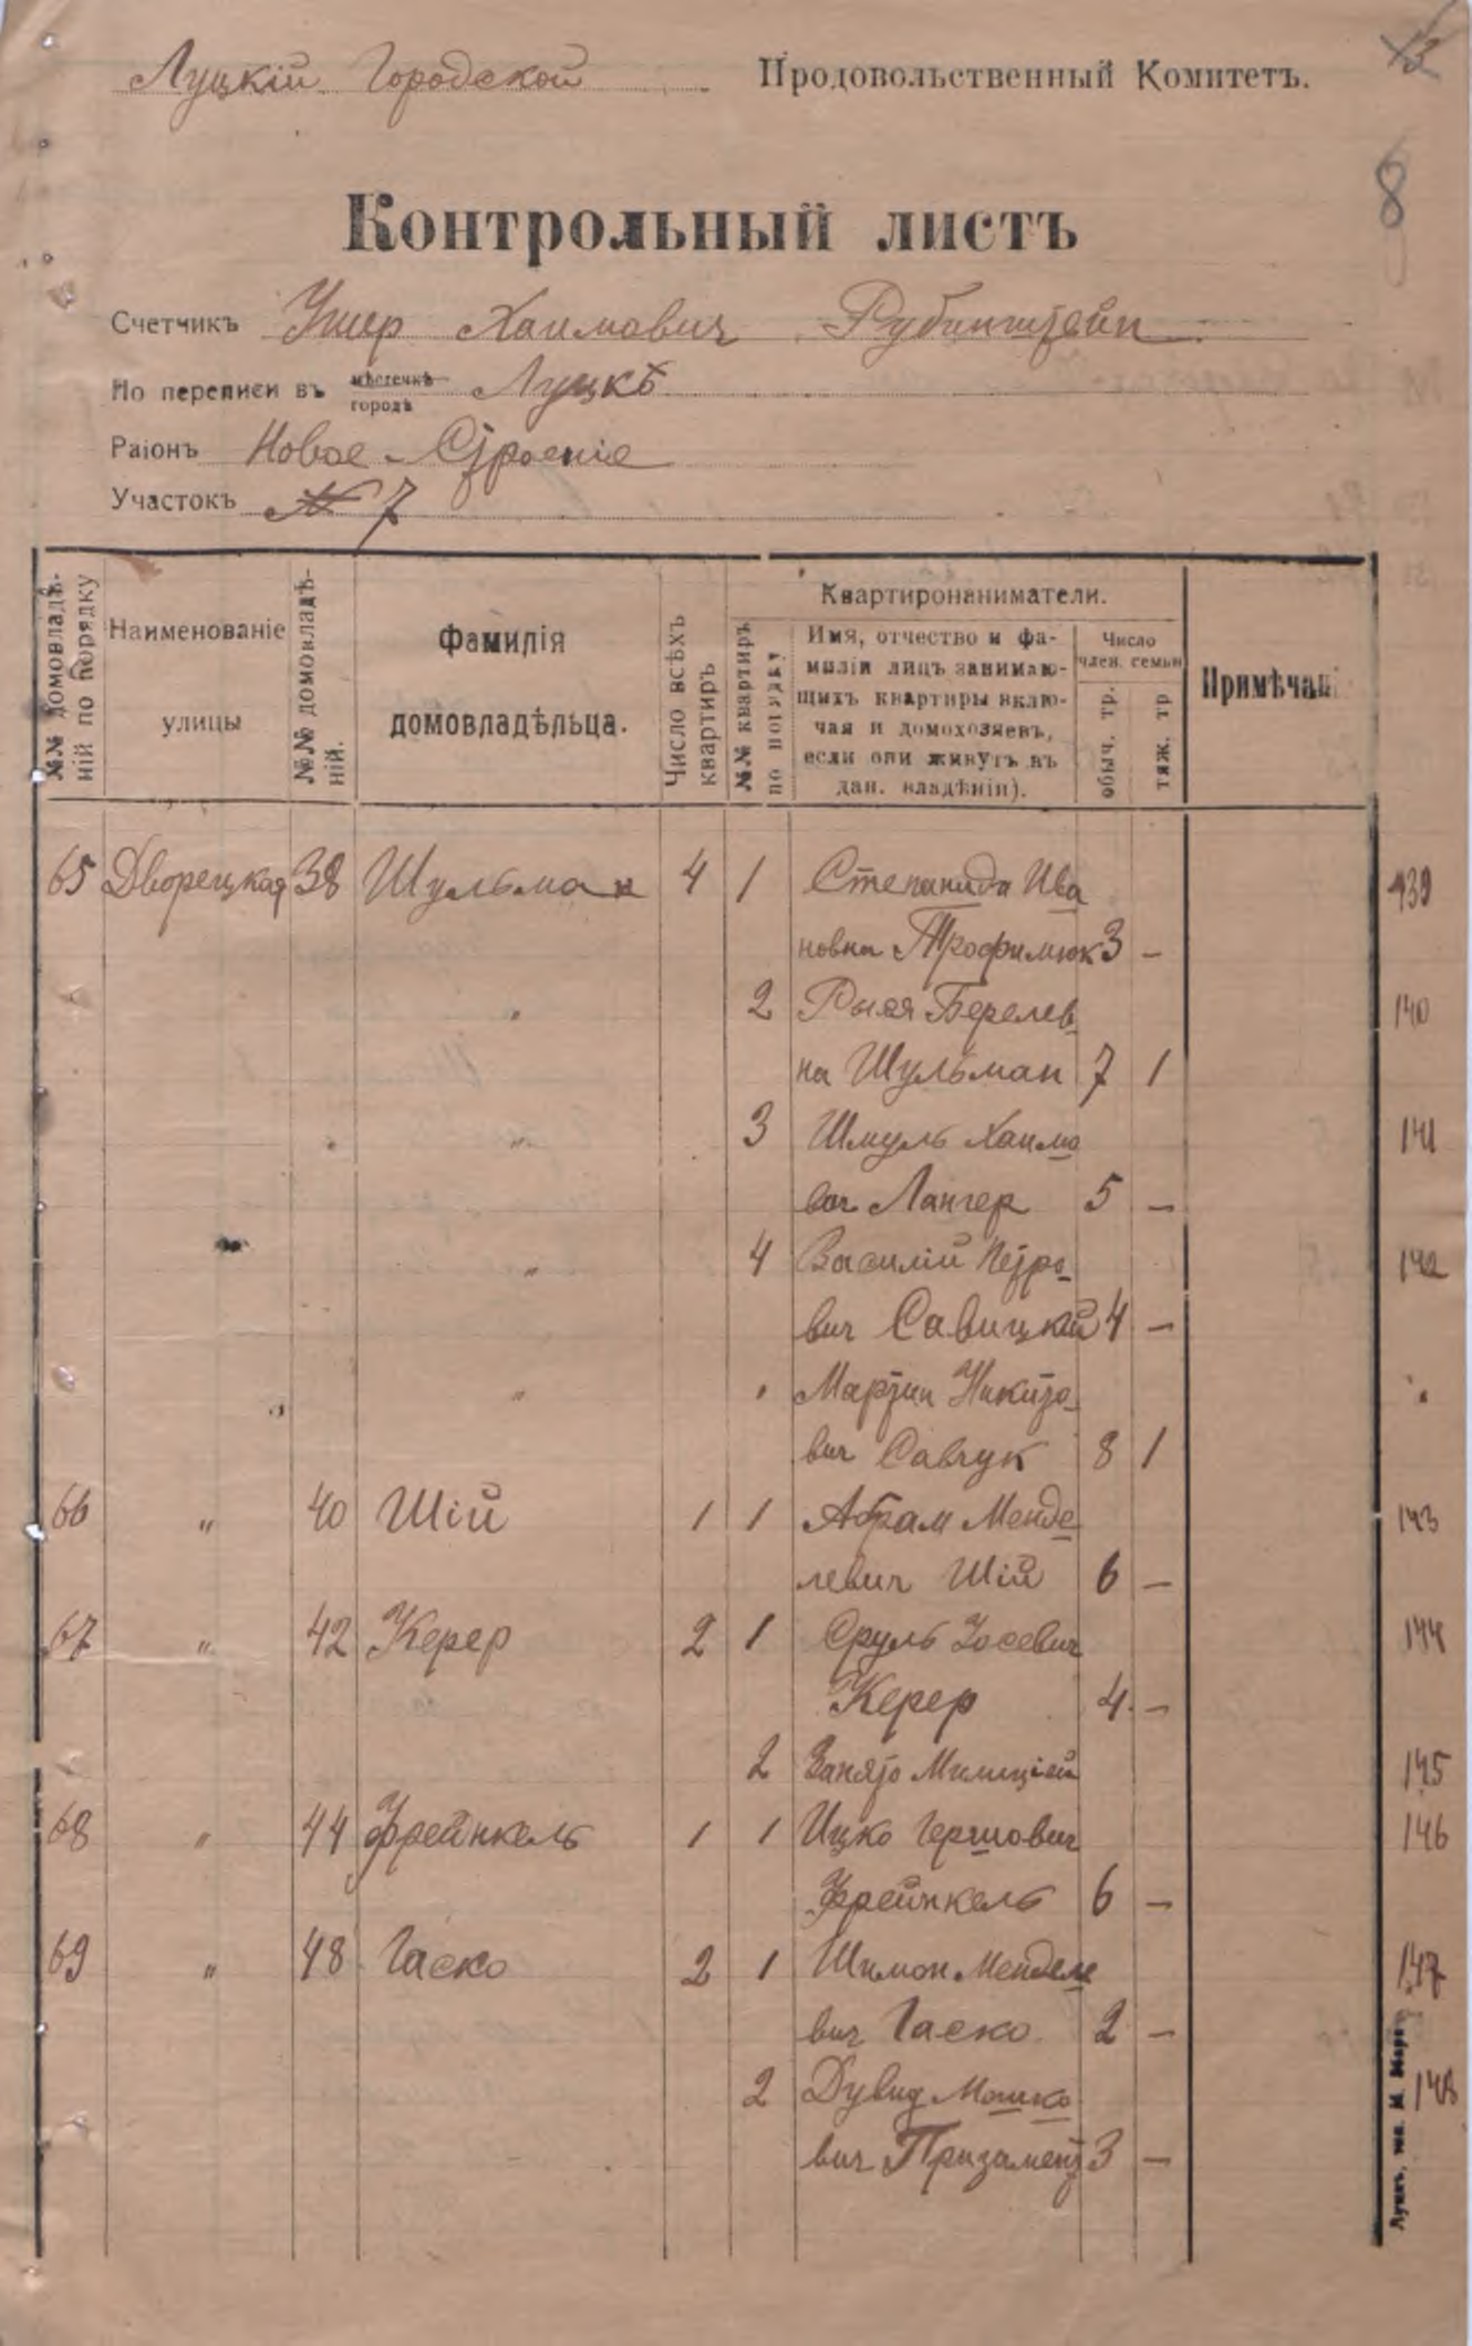 Луцкій Городской Продовольственный Комитетъ.
13
8
Контрольный листъ
Счетчикъ Ушер Хаимович Рубинштейн
По переписи въ мѣстечкѣ городѣ Луцкѣ
Раіонъ Новое-Строеніе
Участокъ № 7
№№ домовладѣ-
ній по порядку
Наименованіе
улицы
№№ домовладѣ-
ній.
Фамилія
домовладѣльца.
Число всѣхъ
квартиръ
№№ квартиръ
по порядку
Квартиронаниматели.
Имя, отчество и фа-
милія лицъ занимаю-
щихъ квартиры вклю-
чая и домохозяевъ,
если они живутъ въ
дан. владѣніи).
Число
член. семьи
обыч. тр.
тяж. тр
Примѣчані
65 Дворецкая 38 Шульман 4 1 Степанида Ива 139
новна Трофимюк 3 –
" 2 Рыся Берелев 140
на Шульман 7 1
" 3 Шмуль Хаимо 141
вич Лангер 5 –
" 4 Василій Петро- 142
вич Савицкій 4 –
" " Мартин Никито- "
вич Савчук 8 1
66 " 40 Шій 1 1 Абрам Менде 143
левич Шій 6 –
67 " 42 Керер 2 1 Сруль Іосевич 144
Керер 4 –
2 Занято Милиціей 145
68 " 44 Френкель 1 1 Ицко Гершович 146
Фрейнкель 6 –
69 " 48 Гаско 2 1 Шимон Менделе 147
вич Гаско 2 –
2 Дувид Мошко 148
вич Призамент 3 –